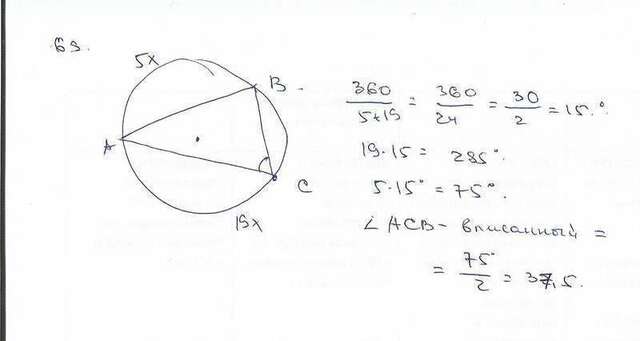 69.
5x
B
A
C
19x
360/(5+19) = 360/24 = 30/2 = 15.°
19·15 = 285°.
5·15° = 75°.
∠ACB - вписанный =
= 75°/2 = 37,5.